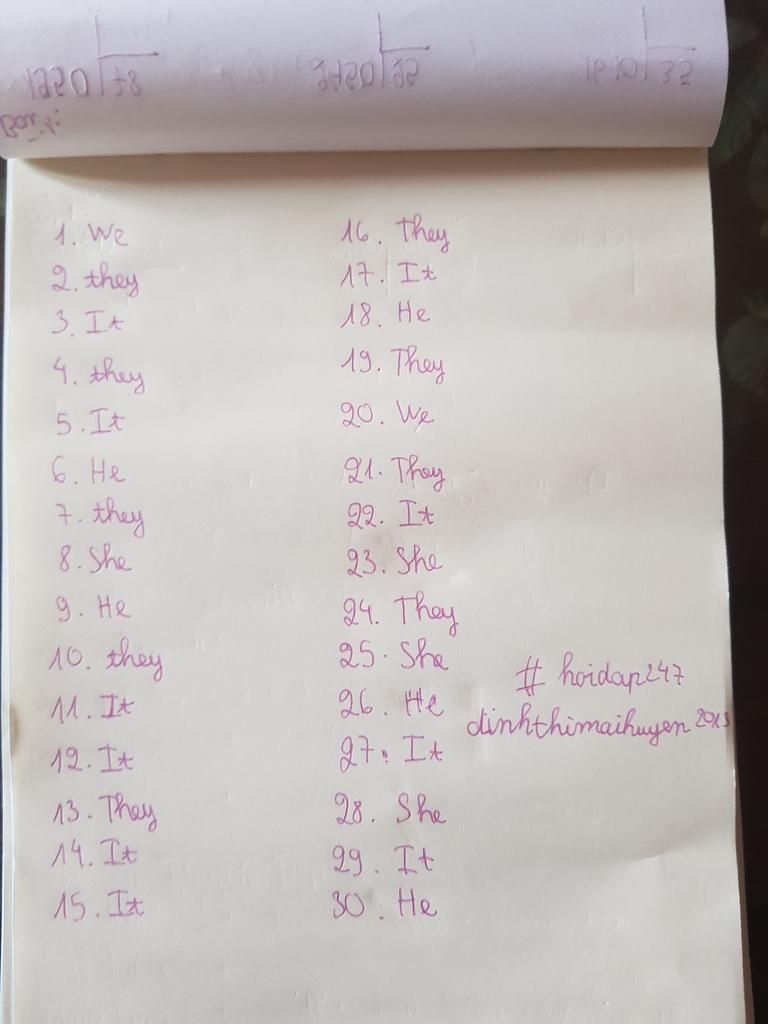 1. We
2. they
3. It
4. they
5. It
6. He
7. they
8. She
9. He
10. they
11. It
12. It
13. They
14. It
15. It
16. They
17. It
18. He
19. They
20. We
21. They
22. It
23. She
24. They
25. She
26. He
27. It
28. She
29. It
30. He
# hoidap247
dinhthimaihuyen2013